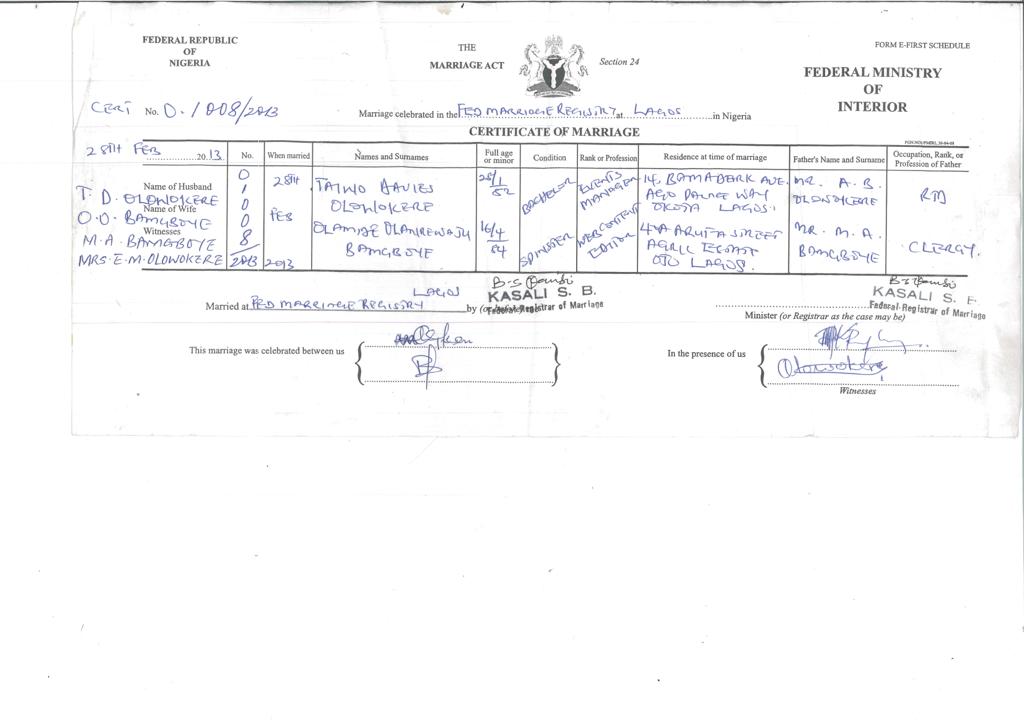 FEDERAL REPUBLIC
OF
NIGERIA
THE
MARRIAGE ACT
Section 24
FORM E-FIRST SCHEDULE
FEDERAL MINISTRY
OF
INTERIOR
CERT No. D./008/2013
Marriage celebrated in the FED MARRIAGE REGISTRY at LAGOS in Nigeria
CERTIFICATE OF MARRIAGE
28TH FEB 2013
No.
When married
Names and Surnames
Full age or minor
Condition
Rank or Profession
Residence at time of marriage
Father's Name and Surname
Occupation, Rank, or Profession of Father
Name of Husband
T. D. OLOWOKERE
Name of Wife
O. O. BAMGBOYE
Witnesses
M. A. BAMGBOYE
MRS. E. M. OLOWOKERE
D
1
0
0
8
2013
28TH
FEB
2013
TAIWO DAVIES
OLOWOKERE
28/1
82
BACHELOR
EVENTS
MANAGER
14, AVE.
AGO PALACE WAY
OKOTA LAGOS.
MR. A. B.
OLOWOKERE
RTD
OLAMIDE OLANREWAJU
BAMGBOYE
16/4
84
SPINSTER
WEBCONTENT
EDITOR
STREET
AGRIC
OJO LAGOS.
MR. M. A.
BAMGBOYE
CLERGY.
LAGOS
Married at FED MARRIAGE REGISTRY by (or before) me
KASALI S. B.
Federal Registrar of Marriage
KASALI S.
Federal Registrar of Marriage
Minister (or Registrar as the case may be)
This marriage was celebrated between us
In the presence of us
Olowokere
Witnesses